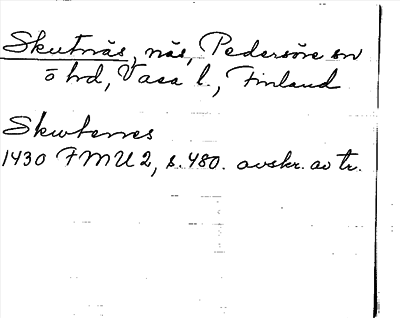 Skutnäs, näs, Pedersöre sn
ö hd, Vasa l., Finland
Skuternes
1430 FMU 2, s. 480. avskr. av tr.